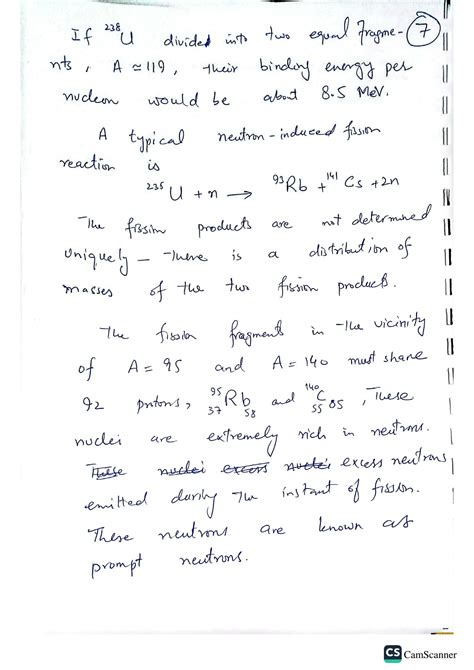 If ²³⁸U divided into two equal fragme- 7
nts, A ≃ 119, their binding energy per
nucleon would be about 8.5 MeV.
A typical neutron-induced fission
reaction is
²³⁵U + n → ⁹³Rb + ¹⁴¹Cs + 2n
The fission products are not determined
uniquely – There is a distribution of
masses of the two fission products.
The fission fragments in the vicinity
of A = 95 and A = 140 must share
92 protons, ⁹⁵₃₇Rb₅₈ and ¹⁴⁰₅₅C85, These
nuclei are extremely rich in neutrons.
These nuclei excess nuclei excess neutrons
emitted during the instant of fission.
These neutrons are known as
prompt neutrons.
CS CamScanner